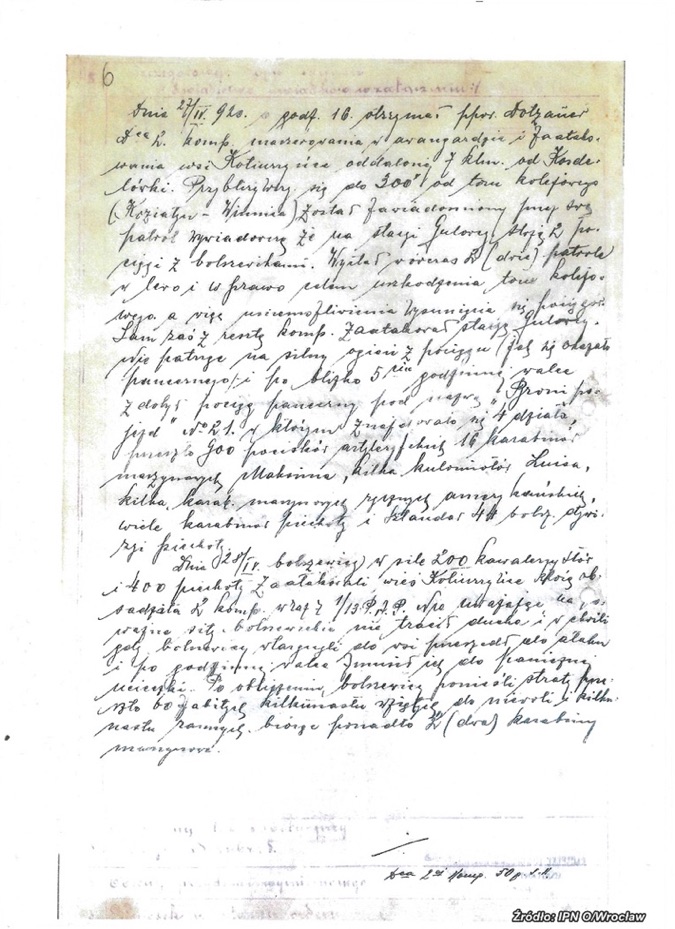 6
Dnia 27/IV. 920. o godz. 16. otrzymał ppor. Dotzauer
Dca 2. komp. maszerowania w awangardzie i zaatako-
wania wsi Koliuszyńce oddalonej 7 klm. od Korde-
lówki. Przybliżywszy się do 300x od toru kolejowego
(Koziatyn - Winnica) został zawiadomiony przez swój
patrol wywiadowczy że na stacji Gulowcy stoją 2 po-
ciągi z bolszewikami. Wysłał wówczas 2 (dwie) patrole
w lewo i w prawo celem uszkodzenia toru kolejo-
wego a więc uniemożliwienia wysunięcia się pociągów.
Sam zaś z resztą komp. zaatakował stację Gulowcy.
nie patrząc na silny ogień z pociągu (jak się okazało
pancernego) i po blizko 5cio godzinnej walce
zdobył pociąg pancerny pod nazwą "Broni po-
jezd" No 21. w którym znajdowało się 4 działa,
przeszło 900 pocisków artyleryjskich, 16 karabinów
maszynowych Maksima, kilka kulomiotów Luisa,
kilka karab. maszynowych ręcznych amerykańskich,
wiele karabinów piechoty i sztandar 44 bolsz. dywi-
zji piechoty.
Dnia 28/IV. bolszewicy w sile 200 kawalerzystów
i 400 piechoty zaatakowali wieś Koliuszyńce którą ob-
sadzała 2 komp. wraz z 1/13. P.A.P. Nie uważając na po-
ważne siły bolszewickie nie tracił ducha i w chwili
gdy bolszewicy wtargnęli do wsi przeszedł do ataku
i po godzinnej walce zmusił ich do panicznej
ucieczki. Po obliczeniu bolszewicy ponieśli straty prze-
szło 60 zabitych kilkunastu wziętych do niewoli i kilku-
nastu rannych. biorąc ponadto 2 (dwa) karabiny
maszynowe.
Dca 2ej Komp. 50 p.
Źródło: IPN O/Wrocław